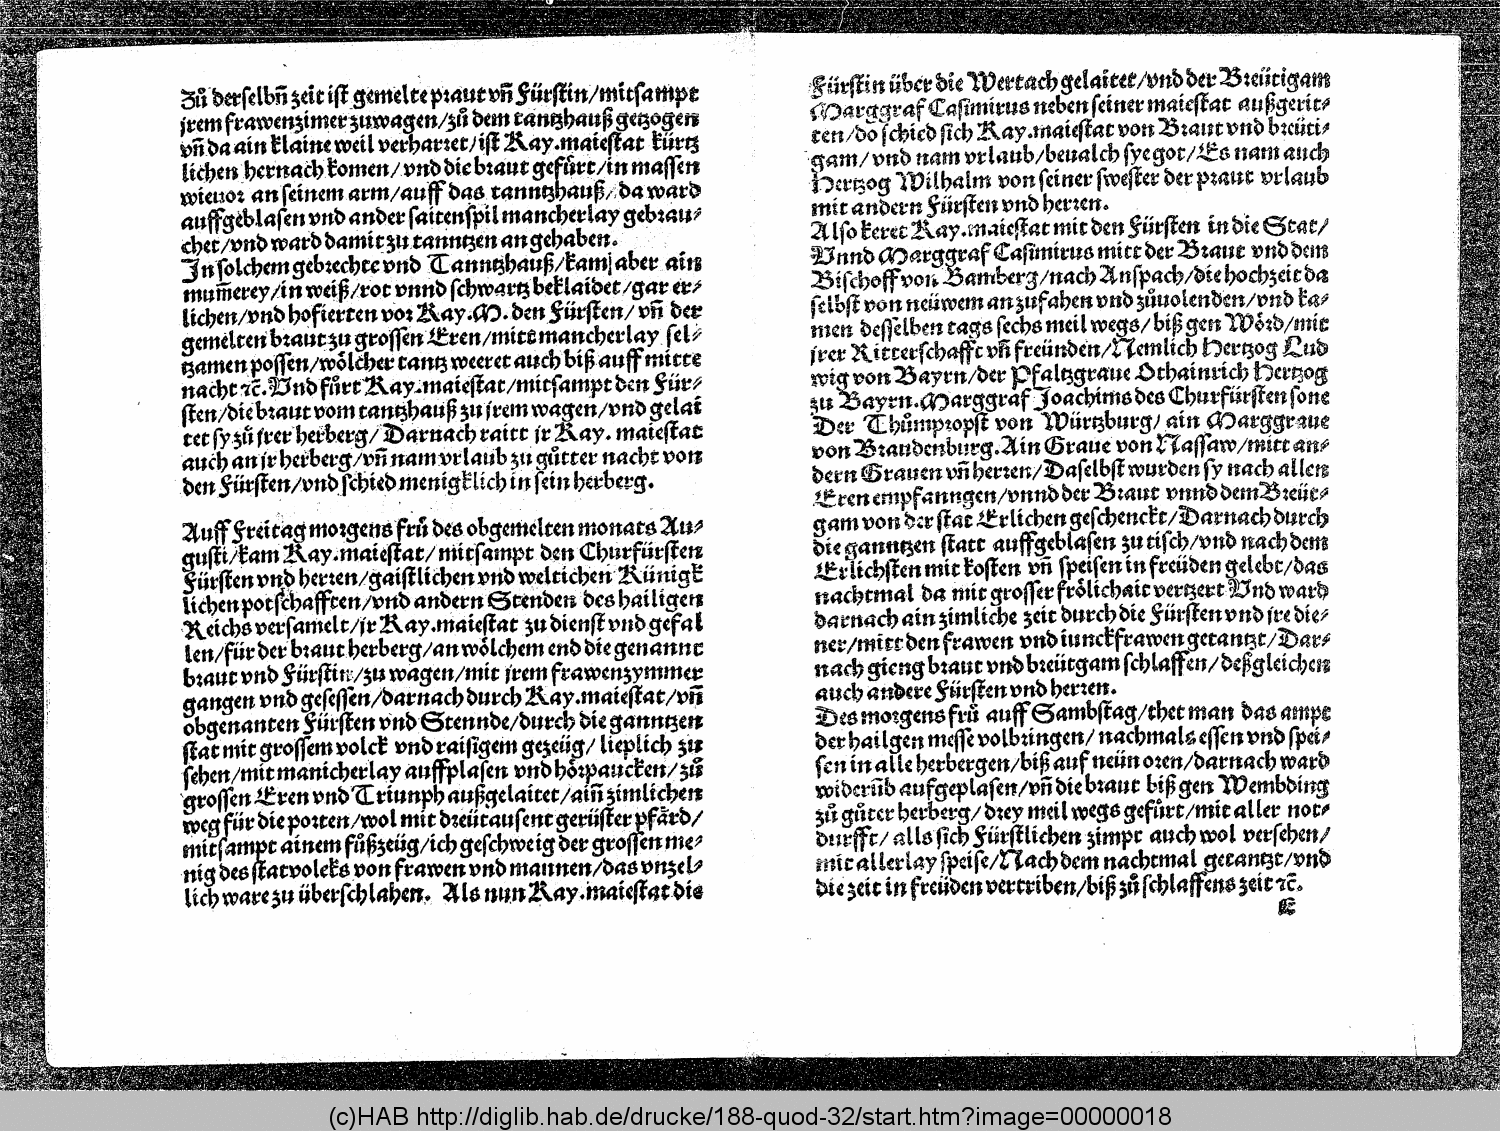 Zů derselbñ zeit ist gemelte praut vñ Fürstin/mitsampt
jrem frawenzimer zuwagen/zů dem tantzhauß getzogen
vñ da ain klaine weil verharret/ist Kay.maiestat kürtz
lichen hernach komen/ vnd die braut gefůrt/in massen
wieuor an seinem arm/auff das tanntzhauß/ da ward
auffgeblasen vnd ander saitenspil mancherlay gebrau-
chet/vnd ward damit zu tanntzen angehaben.
In solchem gebrechte vnd Tanntzhauß/kam aber ain
mum̃erey/in weiß/rot vnnd schwartz beklaidet/gar er-
lichen/vnd hofierten vor Kay.M. den Fürsten/ vñ der
gemelten braut zu grossen Eren/mitt mancherlay sel-
tzamen possen/wölcher tantz weeret auch biß auff mitte
nacht ⁊c̃.Vnd fůrt Kay.maiestat/mitsampt den Für-
sten/die braut vom tantzhauß zu jrem wagen/vnd gelai
tet sy zů jrer herberg/ Darnach raitt jr Kay. maiestat
auch an jr herberg/vñ nam vrlaub zu gůtter nacht von
den Fürsten/vnd schied menigklich in sein herberg.
Auff Freitag morgens frů des obgemelten monats Au-
gusti/kam Kay.maiestat/ mitsampt den Churfürsten
Fürsten vnd herren/gaistlichen vnd weltichen Künigk
lichen potschafften/vnd andern Stenden des hailigen
Reichs versamelt/jr Kay.maiestat zu dienst vnd gefal
len/für der braut herberg/an wölchem end die genannt
braut vnd Fürstin/zu wagen/mit jrem frawenzymmer
gangen vnd gesessen/darnach durch Kay.maiestat/vñ
obgenanten Fürsten vnd Stennde/durch die ganntzen
stat mit grossem volck vnd raisigem gezeüg/ lieplich zu
sehen/mit manicherlay auffplasen vnd hörpaucken/zů
grossen Eren vnd Triunph außgelaitet/aiñ zimlichen
weg für die porten/wol mit dreütausent gerüster pfärd/
mitsampt ainem fůßzeüg/ich geschweig der grossen me-
nig des statvolcks von frawen vnd mannen/das vnzel-
lich ware zu überschlahen. Als nun Kay.maiestat die
Fürstin über die Wertach gelaitet/vnd der Breütigam
Marggraf Casimirus neben seiner maiestat außgerit-
ten/do schied sich Kay.maiestat von Braut vnd breüti-
gam/vnd nam vrlaub/beualch sye got/Es nam auch
Hertzog Wilhalm von seiner swester der praut vrlaub
mit andern Fürsten vnd herren.
Also keret Kay.maiestat mit den Fürsten in die Stat/
Vnnd Marggraf Casimirus mitt der Braut vnd dem
Bischoff von Bamberg/nach Anspach/die hochzeit da
selbst von neüwem anzufahen vnd zůuolenden/vnd ka-
men desselben tags sechs meil wegs/ biß gen Wörd/mit
jrer Ritterschafft vñ freünden/Nemlich Hertzog Lud
wig von Bayrn/der Pfaltzgraue Othainrich Hertzog
zu Bayrn.Marggraf Joachims des Churfürsten sone
Der Thůmpropst von Würtzburg/ ain Marggraue
von Brandenburg.Ain Graue von Nassaw/mitt an-
dern Grauen vñ herren/Daselbst wurden sy nach allen
Eren empfanngen/vnnd der Braut vnnd dem Breüt-
gam von der stat Erlichen geschenckt/Darnach durch
die ganntzen statt auffgeblasen zu tisch/vnd nach dem
Erlichsten mit kosten vñ speisen in freüden gelebt/das
nachtmal da mit grosser frölichait vertzert Vnd ward
darnach ain zimliche zeit durch die Fürsten vnd jre die-
ner/mitt den frawen vnd iunckfrawen getantzt/Dar-
nach gieng braut vnd breütgam schlaffen/deßgleichen
auch andere Fürsten vnd herren.
Des morgens frů auff Sambstag/thet man das ampt
der hailgen messe volbringen/ nachmals essen vnd spei-
sen in alle herbergen/biß auf neün oren/darnach ward
widerũb aufgeplasen/vñ die braut biß gen Wembding
zů gůter herberg/ drey meil wegs gefůrt/mit aller not-
durfft/ alls sich Fürstlichen zimpt auch wol versehen/
mit allerlay speise/Nach dem nachtmal getantzt/vnd
die zeit in freüden vertriben/biß zů schlaffens zeit ⁊c̃.
E
(c)HAB http://diglib.hab.de/drucke/188-quod-32/start.htm?image=00000018